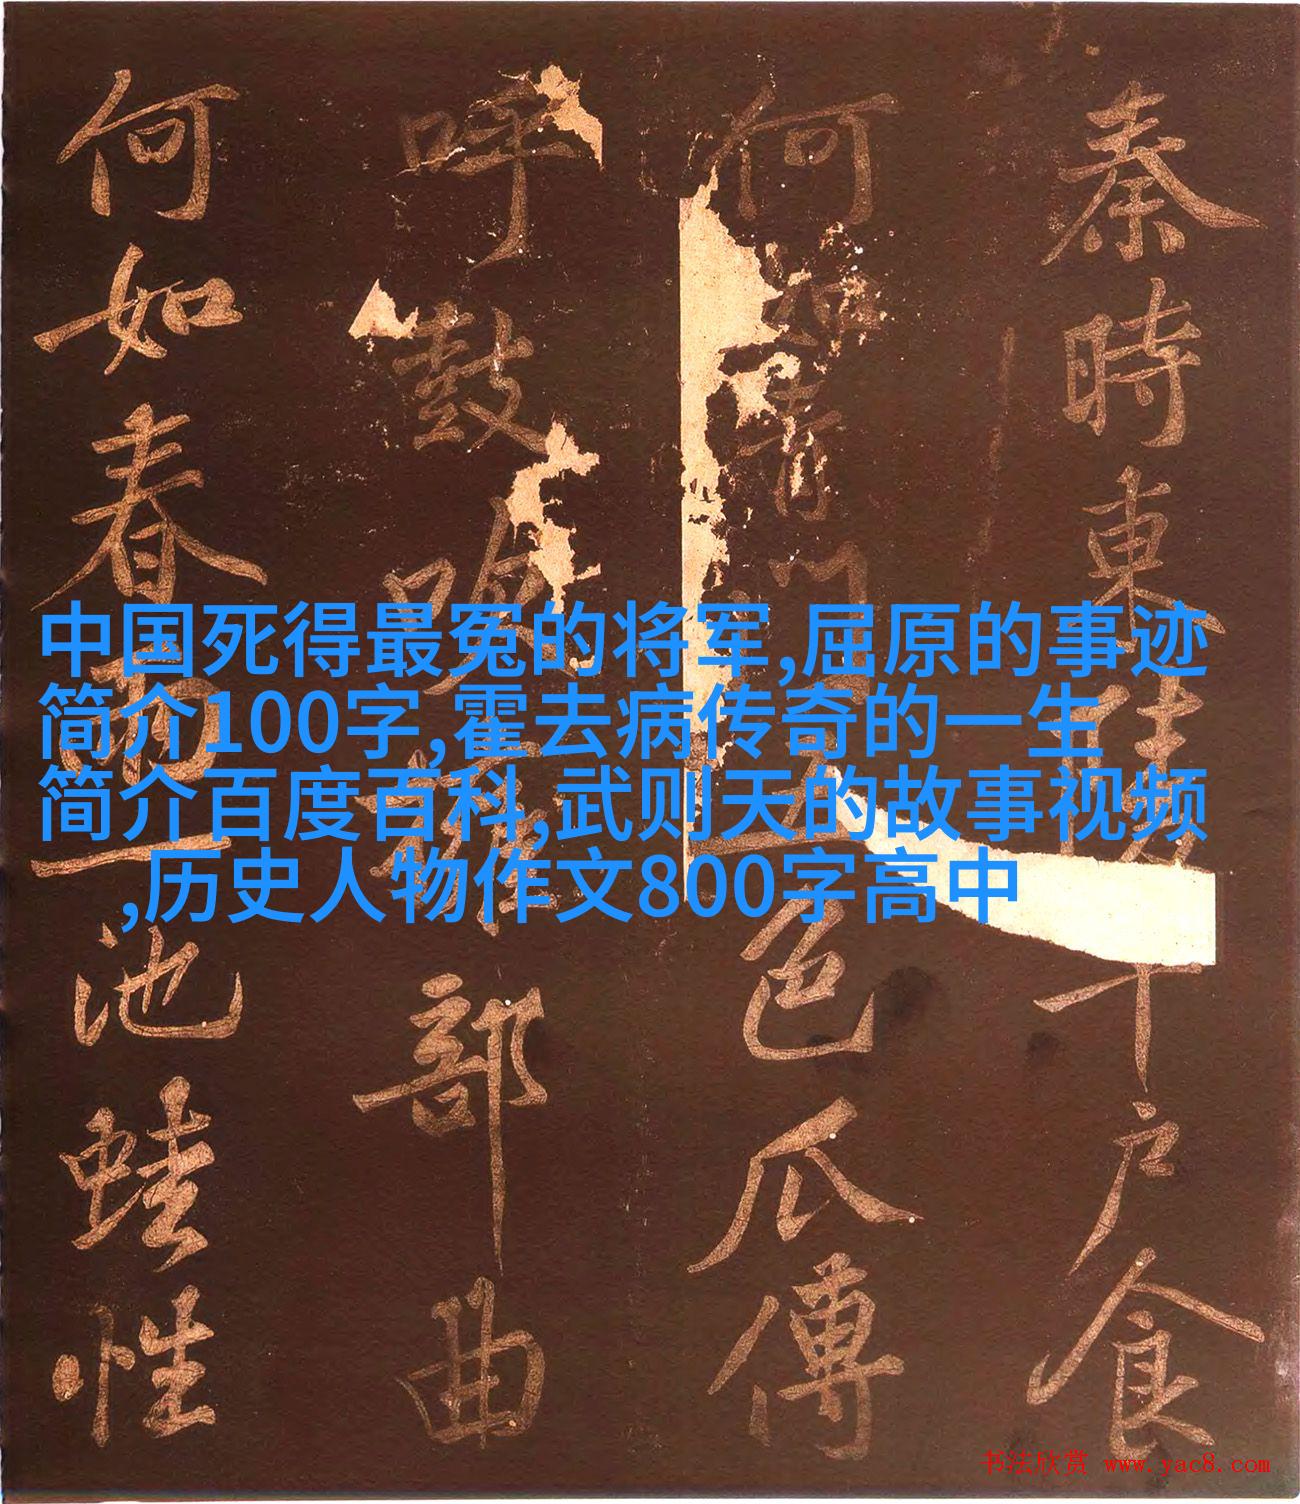 中国死得最冤的将军,屈原的事迹
简介100字,霍去病传奇的一生
简介百度百科,武则天的故事视频
,历史人物作文800字高中
秦時東陵千戶食
何如青門五色瓜傅
呼鼓吹擁部曲
何如春雨一池蛙性
书法欣赏 www.yac8.com